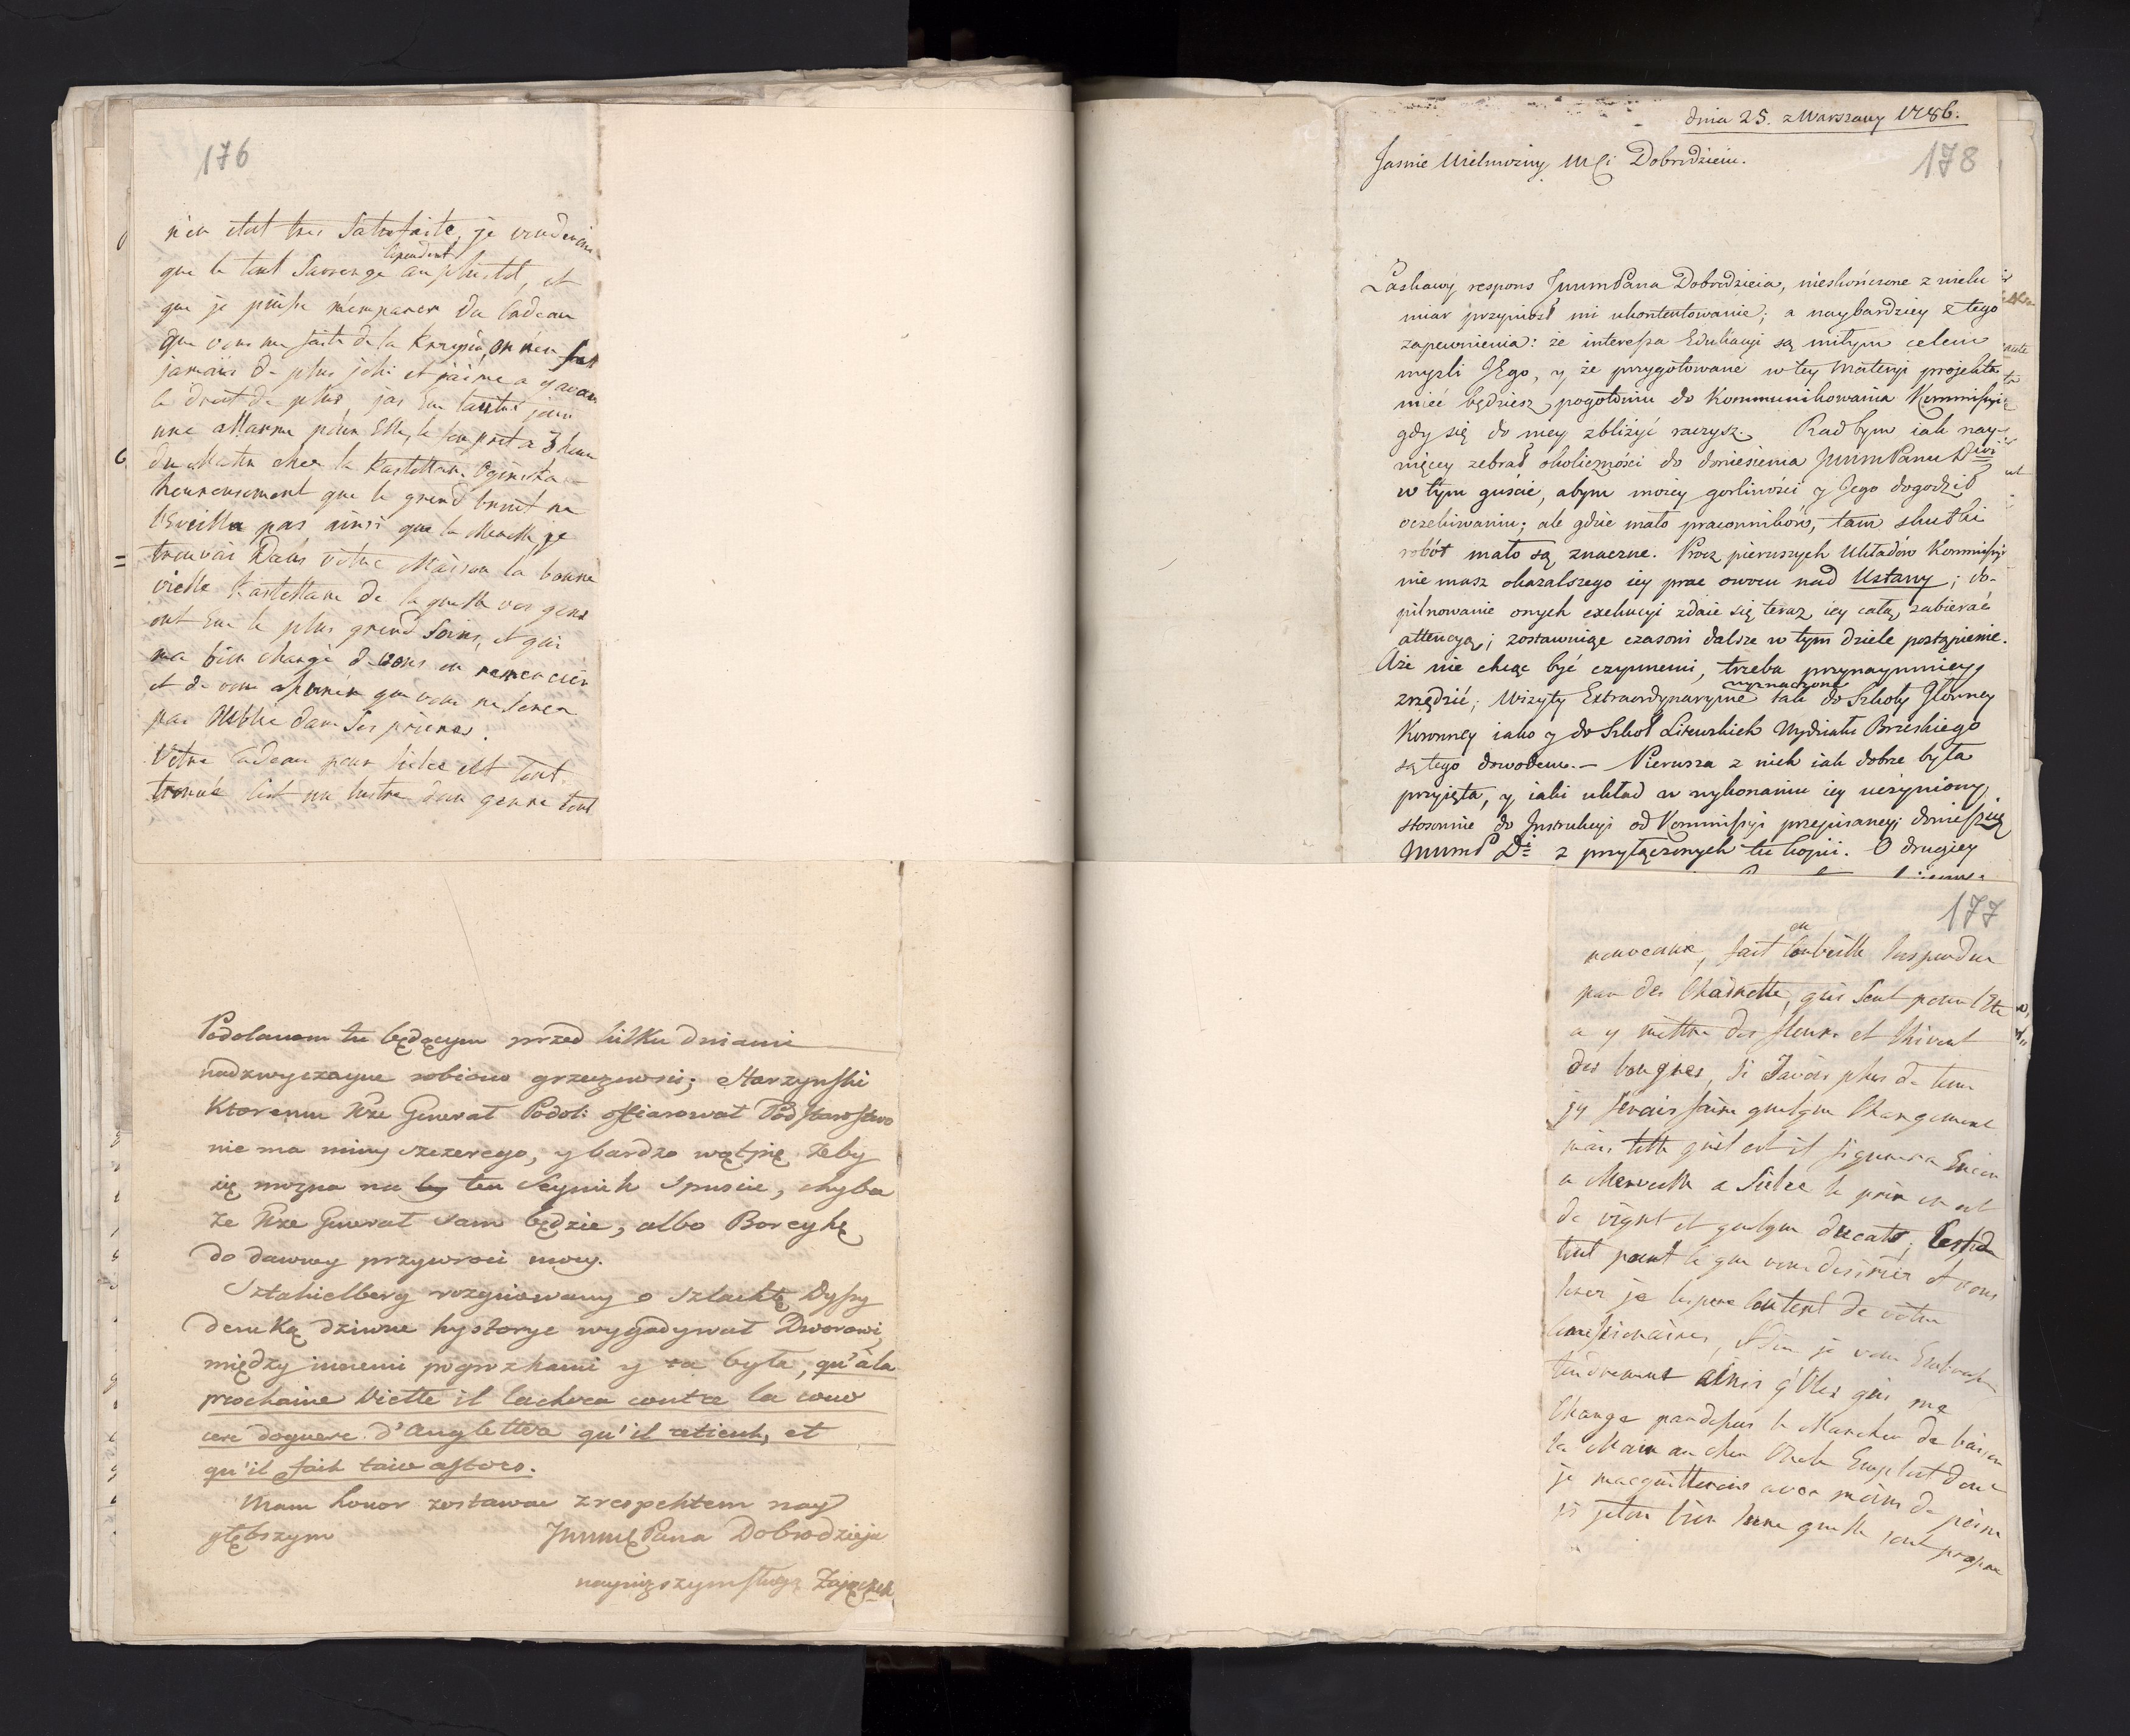 176
n'en etat tres Satisfaite, je voudrais
que le tout Sarrenge Cependant au plustot, et
que je puisse m'emparer du Cadeau
que vous me faite de la Krzysia, on n'en fait
jamais de plus joli et j'aime a y avoir
le droit de plus
une allarme pour Elle, le feu prit a 3 heur
du Matin chez la Kastellane Oginska
heureusement que le grand bruit ne
l'Eveilla pas ainsi que la Marelle je
trouvai Dans votre Maison la bonne
vielle Kastellane de la quelle vos gens
ont Eue le plus grand Soins, et qui
ma bien chargé de vous en remercier
et de vous assurer que vous ne serez
pas oublié dans Ses prieres.
Votre Cadeau pour Sielce est tout
trouvé C'est un lustre d'un genre tout
Podolanom tu będącym przed kilku dniami
nadzwyczayne robiono grzecznosci; Marzynski
Ktoremu Xże Generał Podol: offiarował Podstarostwo
nie ma miny szczerego, y bardzo wątpię żeby
się mozna na ten Seymik spuscic, chyba
że Xże Generał sam będzie, albo Borcykę
do dawney przywroci mocy.
Sztakielberg rozgniewany o szlachtę Dyssy
dencką dziwne hystorye wygadywał Dworowi,
między innemi pogrozkami y ta była, qu'à la
prochaine Diette il lachera contre la cour
cere doguere d'Anglettera qu'il retient, et
qu'il fait taire astore.
Mam honor zostawac z respektem nay
głębszym JWWMę Pana Dobrodzieja
nayniższym sługą Zajączek
dnia 25. z Warszawy 1786.
178
Jasnie Wielmożny Mći Dobrodzieiu.
Łaskawy respons JWWMPana Dobrodzieia, nieskończone z wielu
miar przyniosł mi ukontentowanie; a naybardziey z tego
zapewnienia: że interessa Edukacyi są miłym celem
myśli JEgo, y że przygotowane w tey materyi projekta
mieć będziesz pogotowiu do Kommunikowania Kommissyi
gdy się do niey zbliżyć raczysz. Rad bym iak nay-
więcey zebrał okoliczności do doniesienia JWWMPanu Dwi
w tym guście, abym moiey gorliwości y Jego dogodził
oczekiwaniu; ale gdzie mało pracowników, tam skutki
robót mało są znaczne. Procz pierwszych Układów Kommissyi
nie masz okazalszego iey prac owocu nad Ustawy; do-
pilnowanie onych exekucyi zdaie się teraz iey całą zabierać
attencyą; zostawuiąc czasowi dalsze w tym dziele postąpienie.
Aże nie chcąc być czynnemi, trzeba przynaymniey
zrzędzić; Wizyty Extraordynaryine wyznaczone tak do Szkoły Główney
Koronney iako y do Szkoł Litewskich Wydziału Brzeskiego
są tego dowodem. – Pierwsza z nich iak dobrze była
przyięta, y iaki układ w wykonaniu iey uczyniony,
stosownie do Instrukcyi od Kommissyi przepisaney; doniesie się
JWWMP Di z przyłączonych tu kopii. O drugiey
177
nouveaux, fait en Corbeille suspendue
par des Chainette, qui sont pour l'Ete
a y mettre des fleurs et l'hivert
des bougies, Si J'avois plus de tems
j'y ferais faire quelque Changement
mais telle qu'il est il figurera Encor
a Merveille a Sielce le prix en est
de vignt et quelque ducats;
tout pour le que vous desirier et vous
serez je l'espere Content de votre
Comissionaire,
tendrement ainsi q'Oles qui me
Charge pardessus le Marchee de baiser
la Main au cher Oncle Emplest dont
je m'acquitterais avec moins de peine
si j'etau bien sure quelle